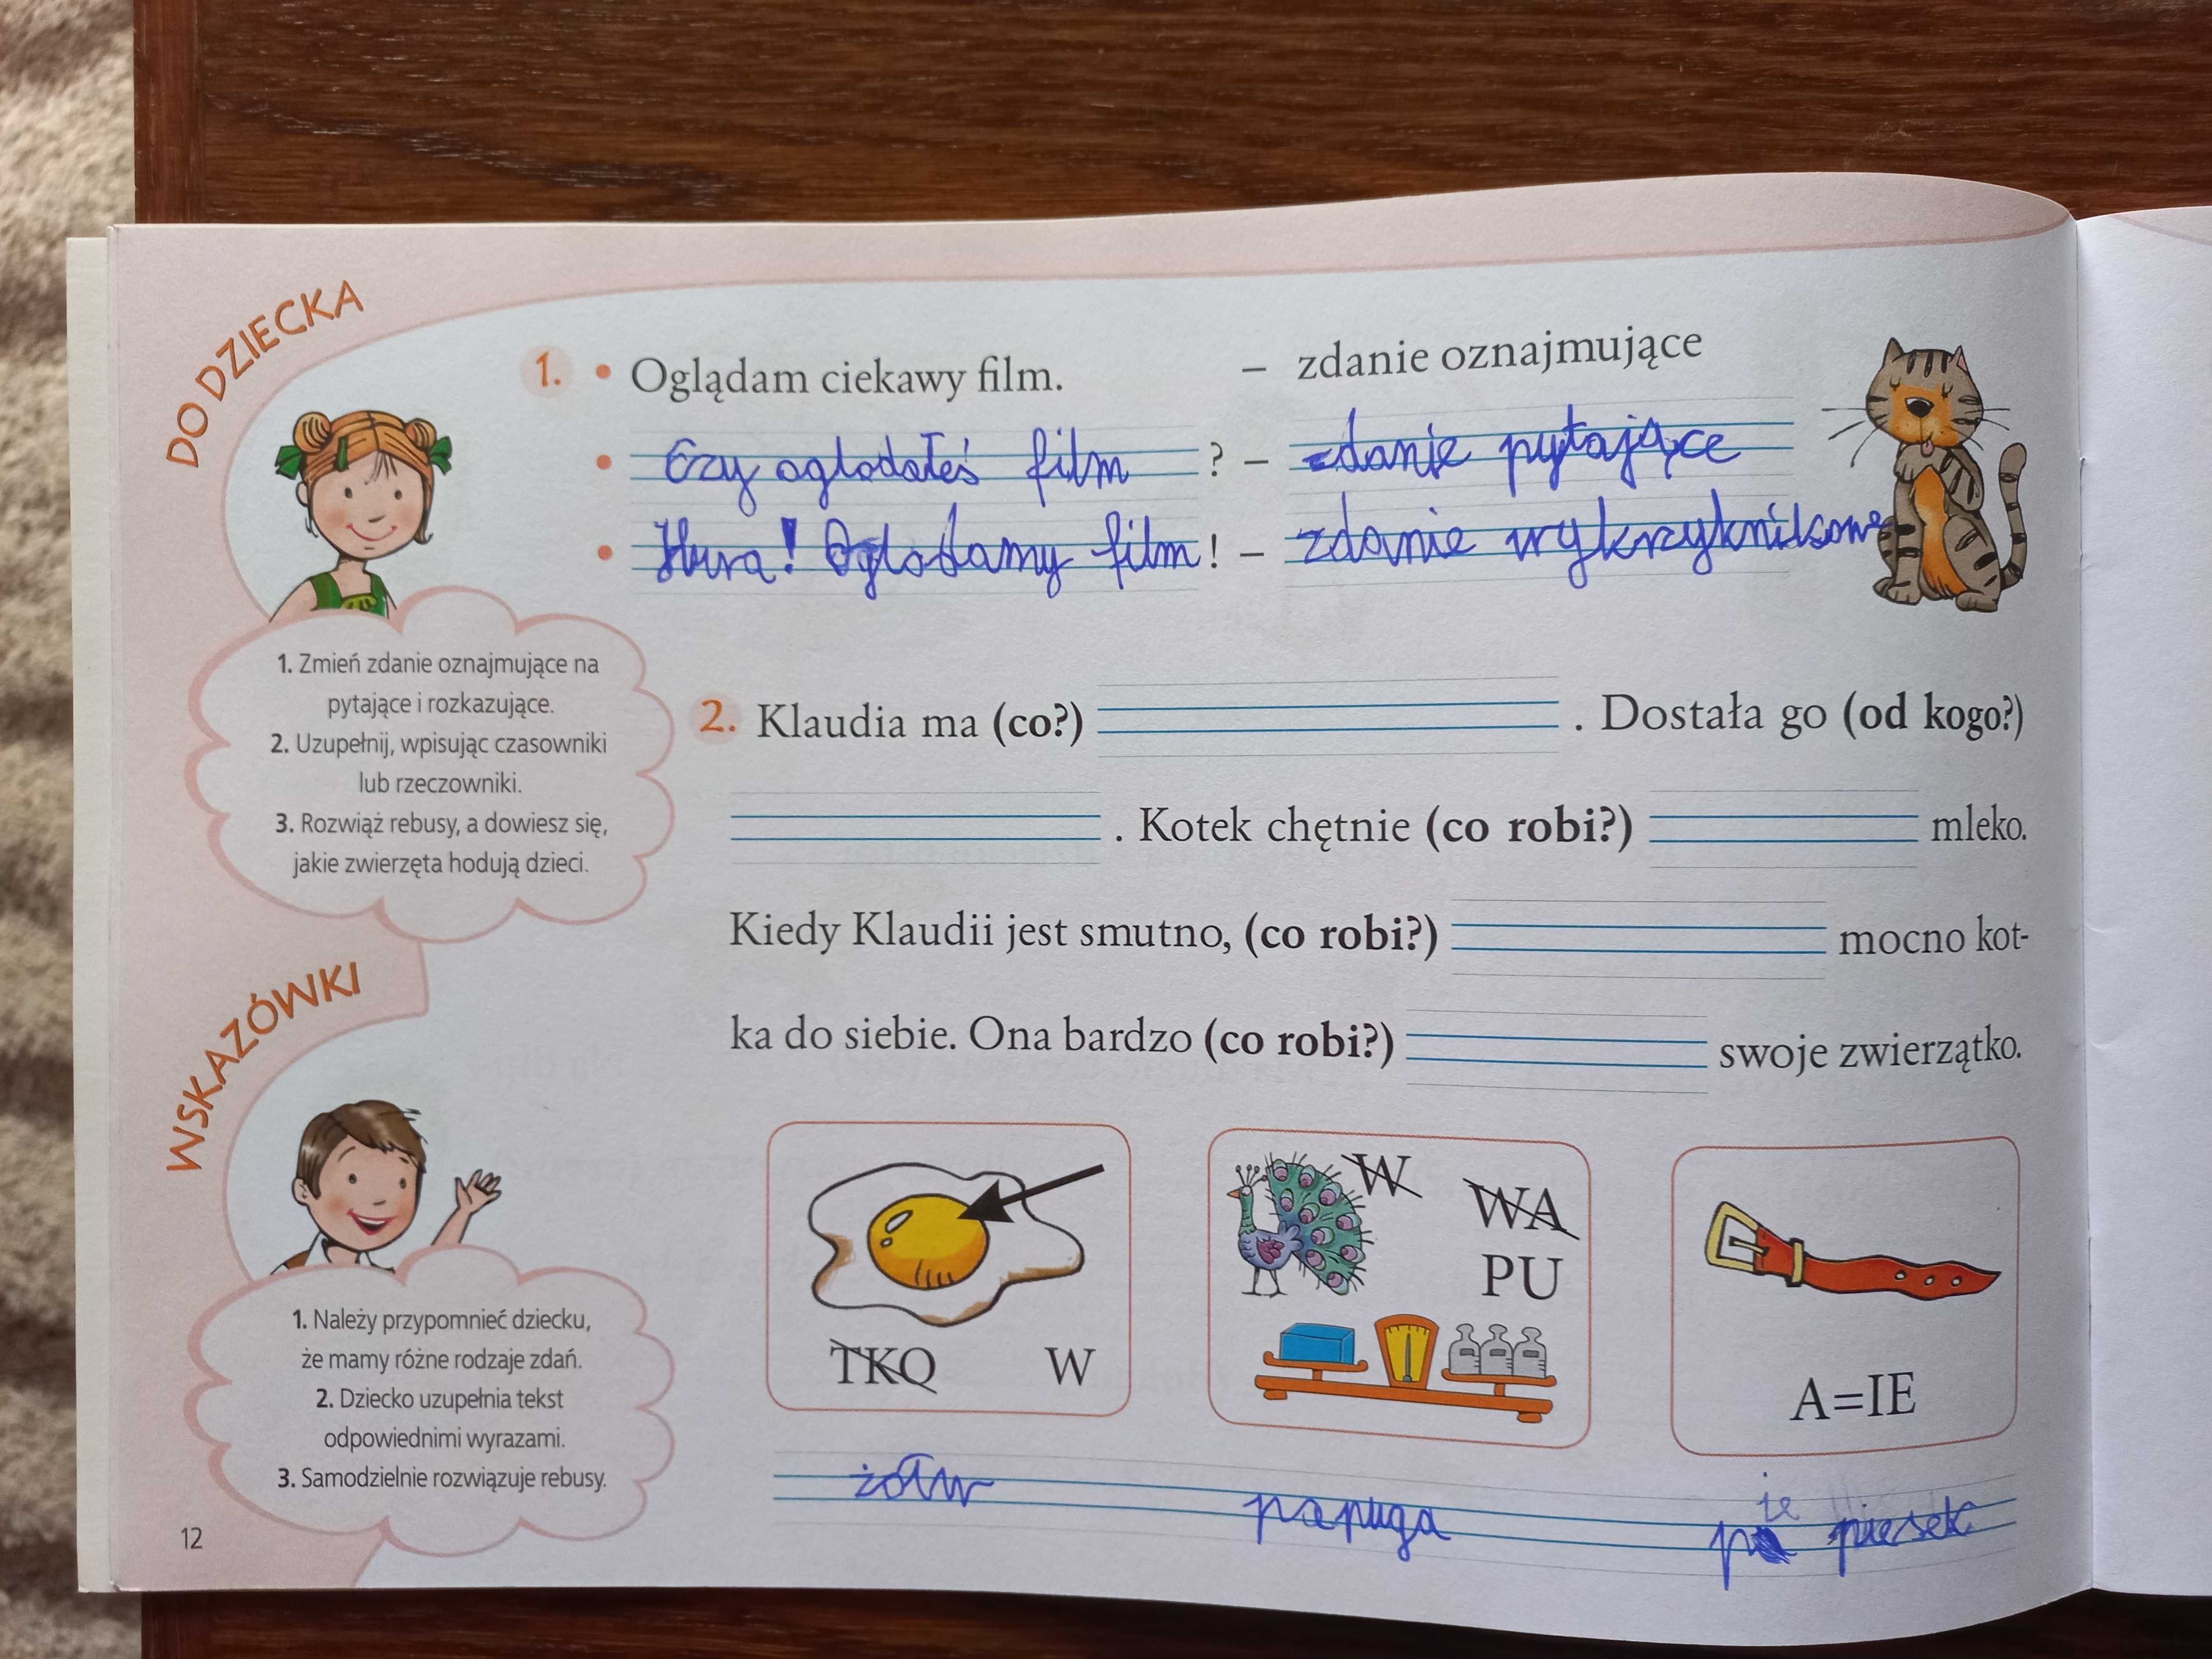 DO DZIECKA
1. • Oglądam ciekawy film. – zdanie oznajmujące
• Czy oglodałeś film ? – zdanie pytające
• Hura! Oglodamy film ! – zdanie wykrzyknikowe
1. Zmień zdanie oznajmujące na
pytające i rozkazujące.
2. Uzupełnij, wpisując czasowniki
lub rzeczowniki.
3. Rozwiąż rebusy, a dowiesz się,
jakie zwierzęta hodują dzieci.
2. Klaudia ma (co?) . Dostała go (od kogo?)
. Kotek chętnie (co robi?) mleko.
Kiedy Klaudii jest smutno, (co robi?) mocno kot-
ka do siebie. Ona bardzo (co robi?) swoje zwierzątko.
WSKAZÓWKI
1. Należy przypomnieć dziecku,
że mamy różne rodzaje zdań.
2. Dziecko uzupełnia tekst
odpowiednimi wyrazami.
3. Samodzielnie rozwiązuje rebusy.
TKO W
W
WA
PU
A=IE
żółw papuga piesek
ie
12